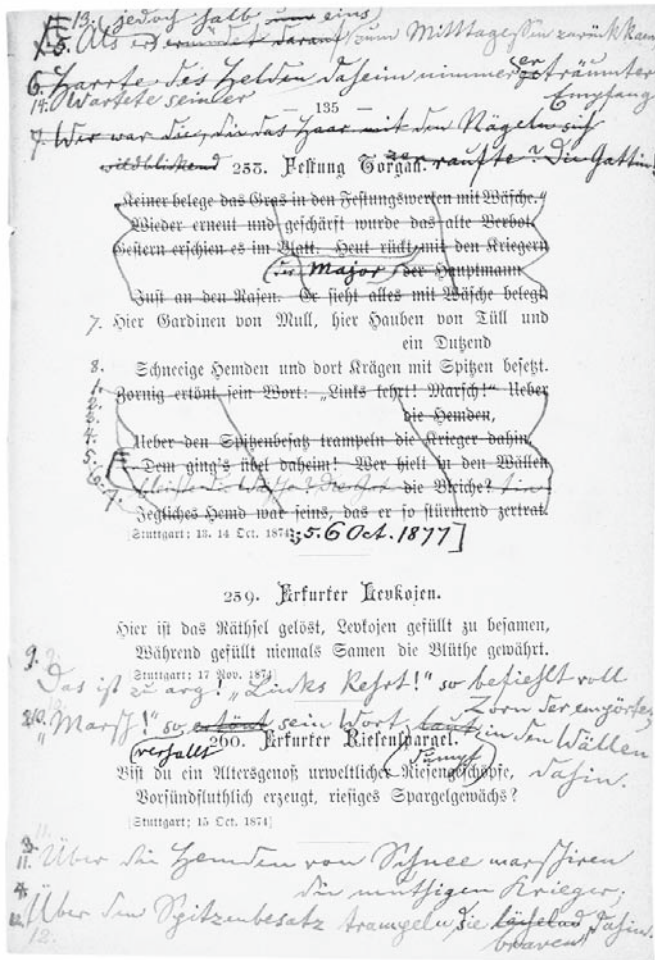 13. (jedoch halb um eins)
5. Als er ermüdet darauf zum Mittagessen zurück kam,
6. Harrte des Helden daheim nimmer erträumter
Empfang
14. Wartete seiner
— 135 —
7. Wer war die, die das Haar mit den Nägeln sich
wildblickend zerraufte? Die Gattin!
258. Festung Torgau.
„Keiner belege das Gras in den Festungswerken mit Wäsche.“
Wieder erneut und geschärft wurde das alte Verbot.
Gestern erschien es im Blatt. Heut rückt mit den Kriegern
(der Major) der Hauptmann
Just an den Rasen. Er sieht alles mit Wäsche belegt.
7. Hier Gardinen von Mull, hier Hauben von Tüll und
ein Dutzend
8. Schneeige Hemden und dort Krägen mit Spitzen besetzt.
1. Zornig ertönt sein Wort: „Links kehrt! Marsch!“ Ueber
2.
die Hemden,
3.
4. Ueber den Spitzenbesatz trampeln die Krieger dahin.
5. Dem ging's übel daheim! Wer hielt in den Wällen
6. die Bleiche?
7. Jegliches Hemd war seins, das er so stürmend zertrat.
[Stuttgart; 13. 14 Oct. 1874; 5. 6 Oct. 1877]
259. Erfurter Levkojen.
Hier ist das Räthsel gelöst, Levkojen gefüllt zu besamen,
Während gefüllt niemals Samen die Blüthe gewährt.
[Stuttgart; 17 Nov. 1874]
9. Das ist zu arg! „Links kehrt!“ so befiehlt voll
Zorn der empörte,
10. „Marsch!“ so ertönt sein Wort laut in den Wällen
verhallt dumpf dahin.
260. Erfurter Riesenspargel.
Bist du ein Altersgenoß urweltlicher Riesengeschöpfe,
Vorsündfluthlich erzeugt, riesiges Spargelgewächs?
[Stuttgart; 15 Oct. 1874]
11. Über die Hemden von Schnee marschiren
die muthigen Krieger;
12. Über den Spitzenbesatz trampeln die lächelnd dahin.
braven
12.